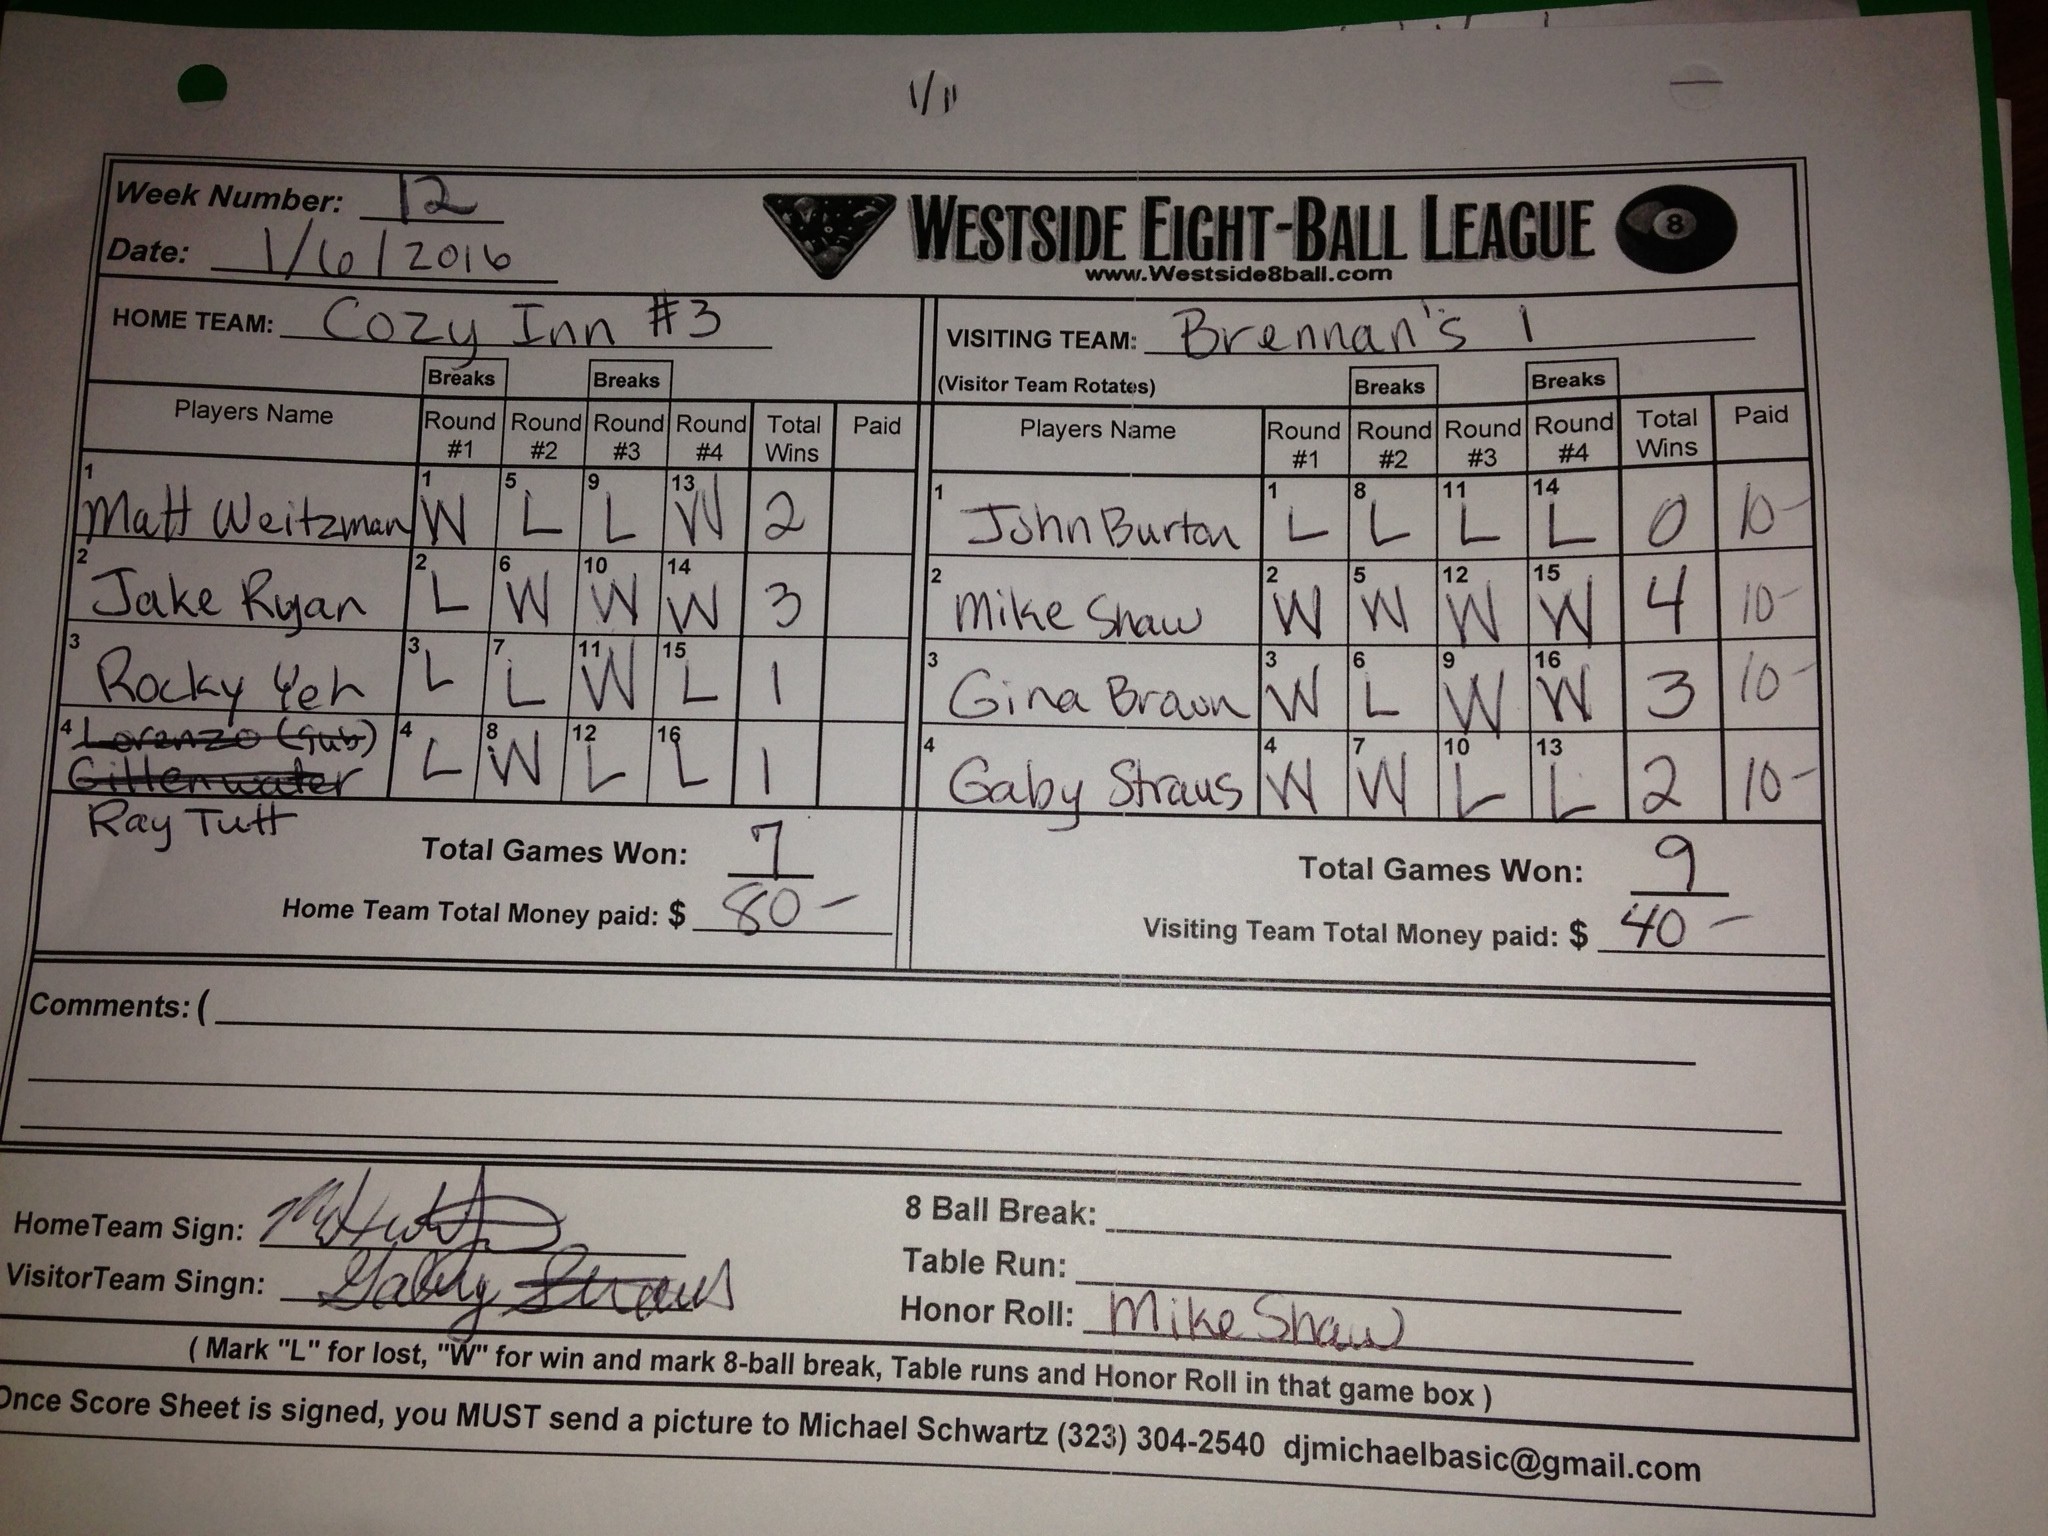 1/11
Week Number: 12
Date: 1/6/2016
WESTSIDE EIGHT-BALL LEAGUE
8
www.Westside8ball.com
HOME TEAM: Cozy Inn #3
VISITING TEAM: Brennan's 1
Breaks Breaks
(Visitor Team Rotates) Breaks Breaks
Players Name Round #1 Round #2 Round #3 Round #4 Total Wins Paid
Players Name Round #1 Round #2 Round #3 Round #4 Total Wins Paid
1 Matt Weitzman 1 W 5 L 9 L 13 W 2
1 John Burton 1 L 8 L 11 L 14 L 0 10-
2 Jake Ryan 2 L 6 W 10 W 14 W 3
2 Mike Shaw 2 W 5 W 12 W 15 W 4 10-
3 Rocky Yeh 3 L 7 L 11 W 15 L 1
3 Gina Braun 3 W 6 L 9 W 16 W 3 10-
4 Lorenzo (sub) 4 L 8 W 12 L 16 L 1
Gittenwater
4 Gaby Straus 4 W 7 W 10 L 13 L 2 10-
Ray Tutt
Total Games Won: 7
Total Games Won: 9
Home Team Total Money paid: $ 80-
Visiting Team Total Money paid: $ 40-
Comments: (
HomeTeam Sign:
8 Ball Break:
VisitorTeam Singn: Gaby Straus
Table Run:
Honor Roll: Mike Shaw
( Mark "L" for lost, "W" for win and mark 8-ball break, Table runs and Honor Roll in that game box )
Once Score Sheet is signed, you MUST send a picture to Michael Schwartz (323) 304-2540 djmichaelbasic@gmail.com